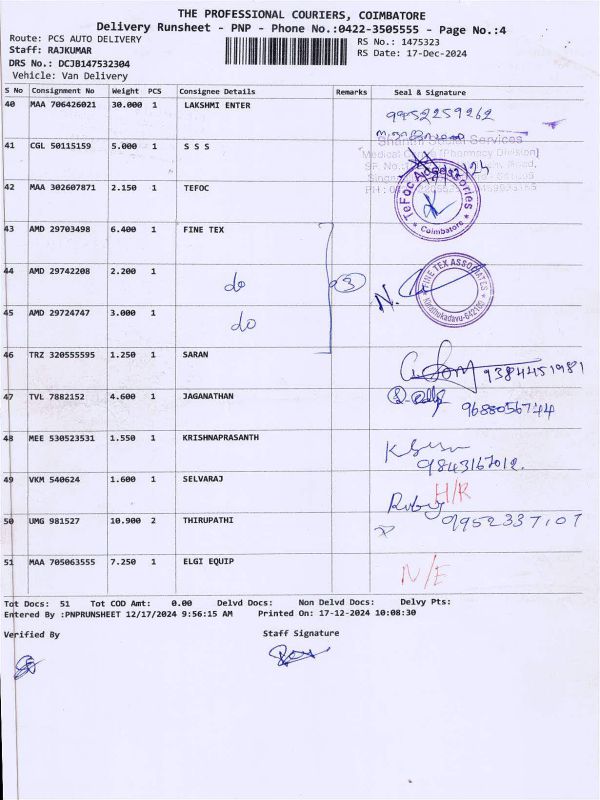 THE PROFESSIONAL COURIERS, COIMBATORE
Delivery Runsheet - PNP - Phone No.:0422-3505555 - Page No.:4
Route: PCS AUTO DELIVERY
RS No.: 1475323
Staff: RAJKUMAR
RS Date: 17-Dec-2024
DRS No.: DCJB147532304
Vehicle: Van Delivery
S No Consignment No Weight PCS Consignee Details Remarks Seal & Signature
40 MAA 706426021 30.000 1 LAKSHMI ENTER
9952259262
41 CGL 50115159 5.000 1 S S S
Social Services
[Pharmacy Division]
42 MAA 302607871 2.150 1 TEFOC
TeFoc Accessories
* Coimbatore *
43 AMD 29703498 6.400 1 FINE TEX
44 AMD 29742208 2.200 1 do 3
FINE TEX ASSOCIATES
Kinathukadavu-642109
45 AMD 29724747 3.000 1 do
46 TRZ 320555595 1.250 1 SARAN 9384451981
47 TVL 7882152 4.600 1 JAGANATHAN 9688056744
48 MEE 530523531 1.550 1 KRISHNAPRASANTH
9843167012.
49 VKM 540624 1.600 1 SELVARAJ H/R
50 UMG 981527 10.900 2 THIRUPATHI
51 MAA 705063555 7.250 1 ELGI EQUIP N/E
Tot Docs: 51 Tot COD Amt: 0.00 Delvd Docs: Non Delvd Docs: Delvy Pts:
Entered By :PNPRUNSHEET 12/17/2024 9:56:15 AM Printed On: 17-12-2024 10:08:30
Verified By Staff Signature